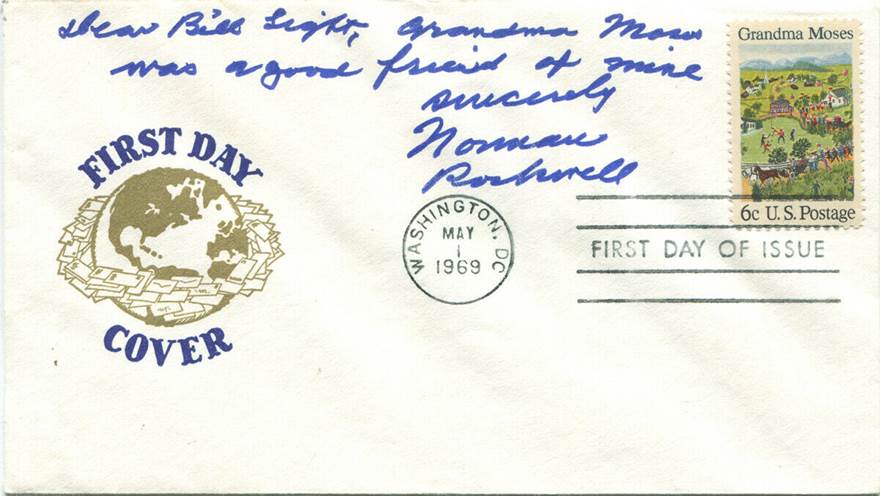 Dear Bill Light, Grandma Moses
was a good friend of mine
Sincerely
Norman
Rockwell
Grandma Moses
6c U.S. Postage
FIRST DAY
COVER
WASHINGTON, DC
MAY
1
1969
FIRST DAY OF ISSUE